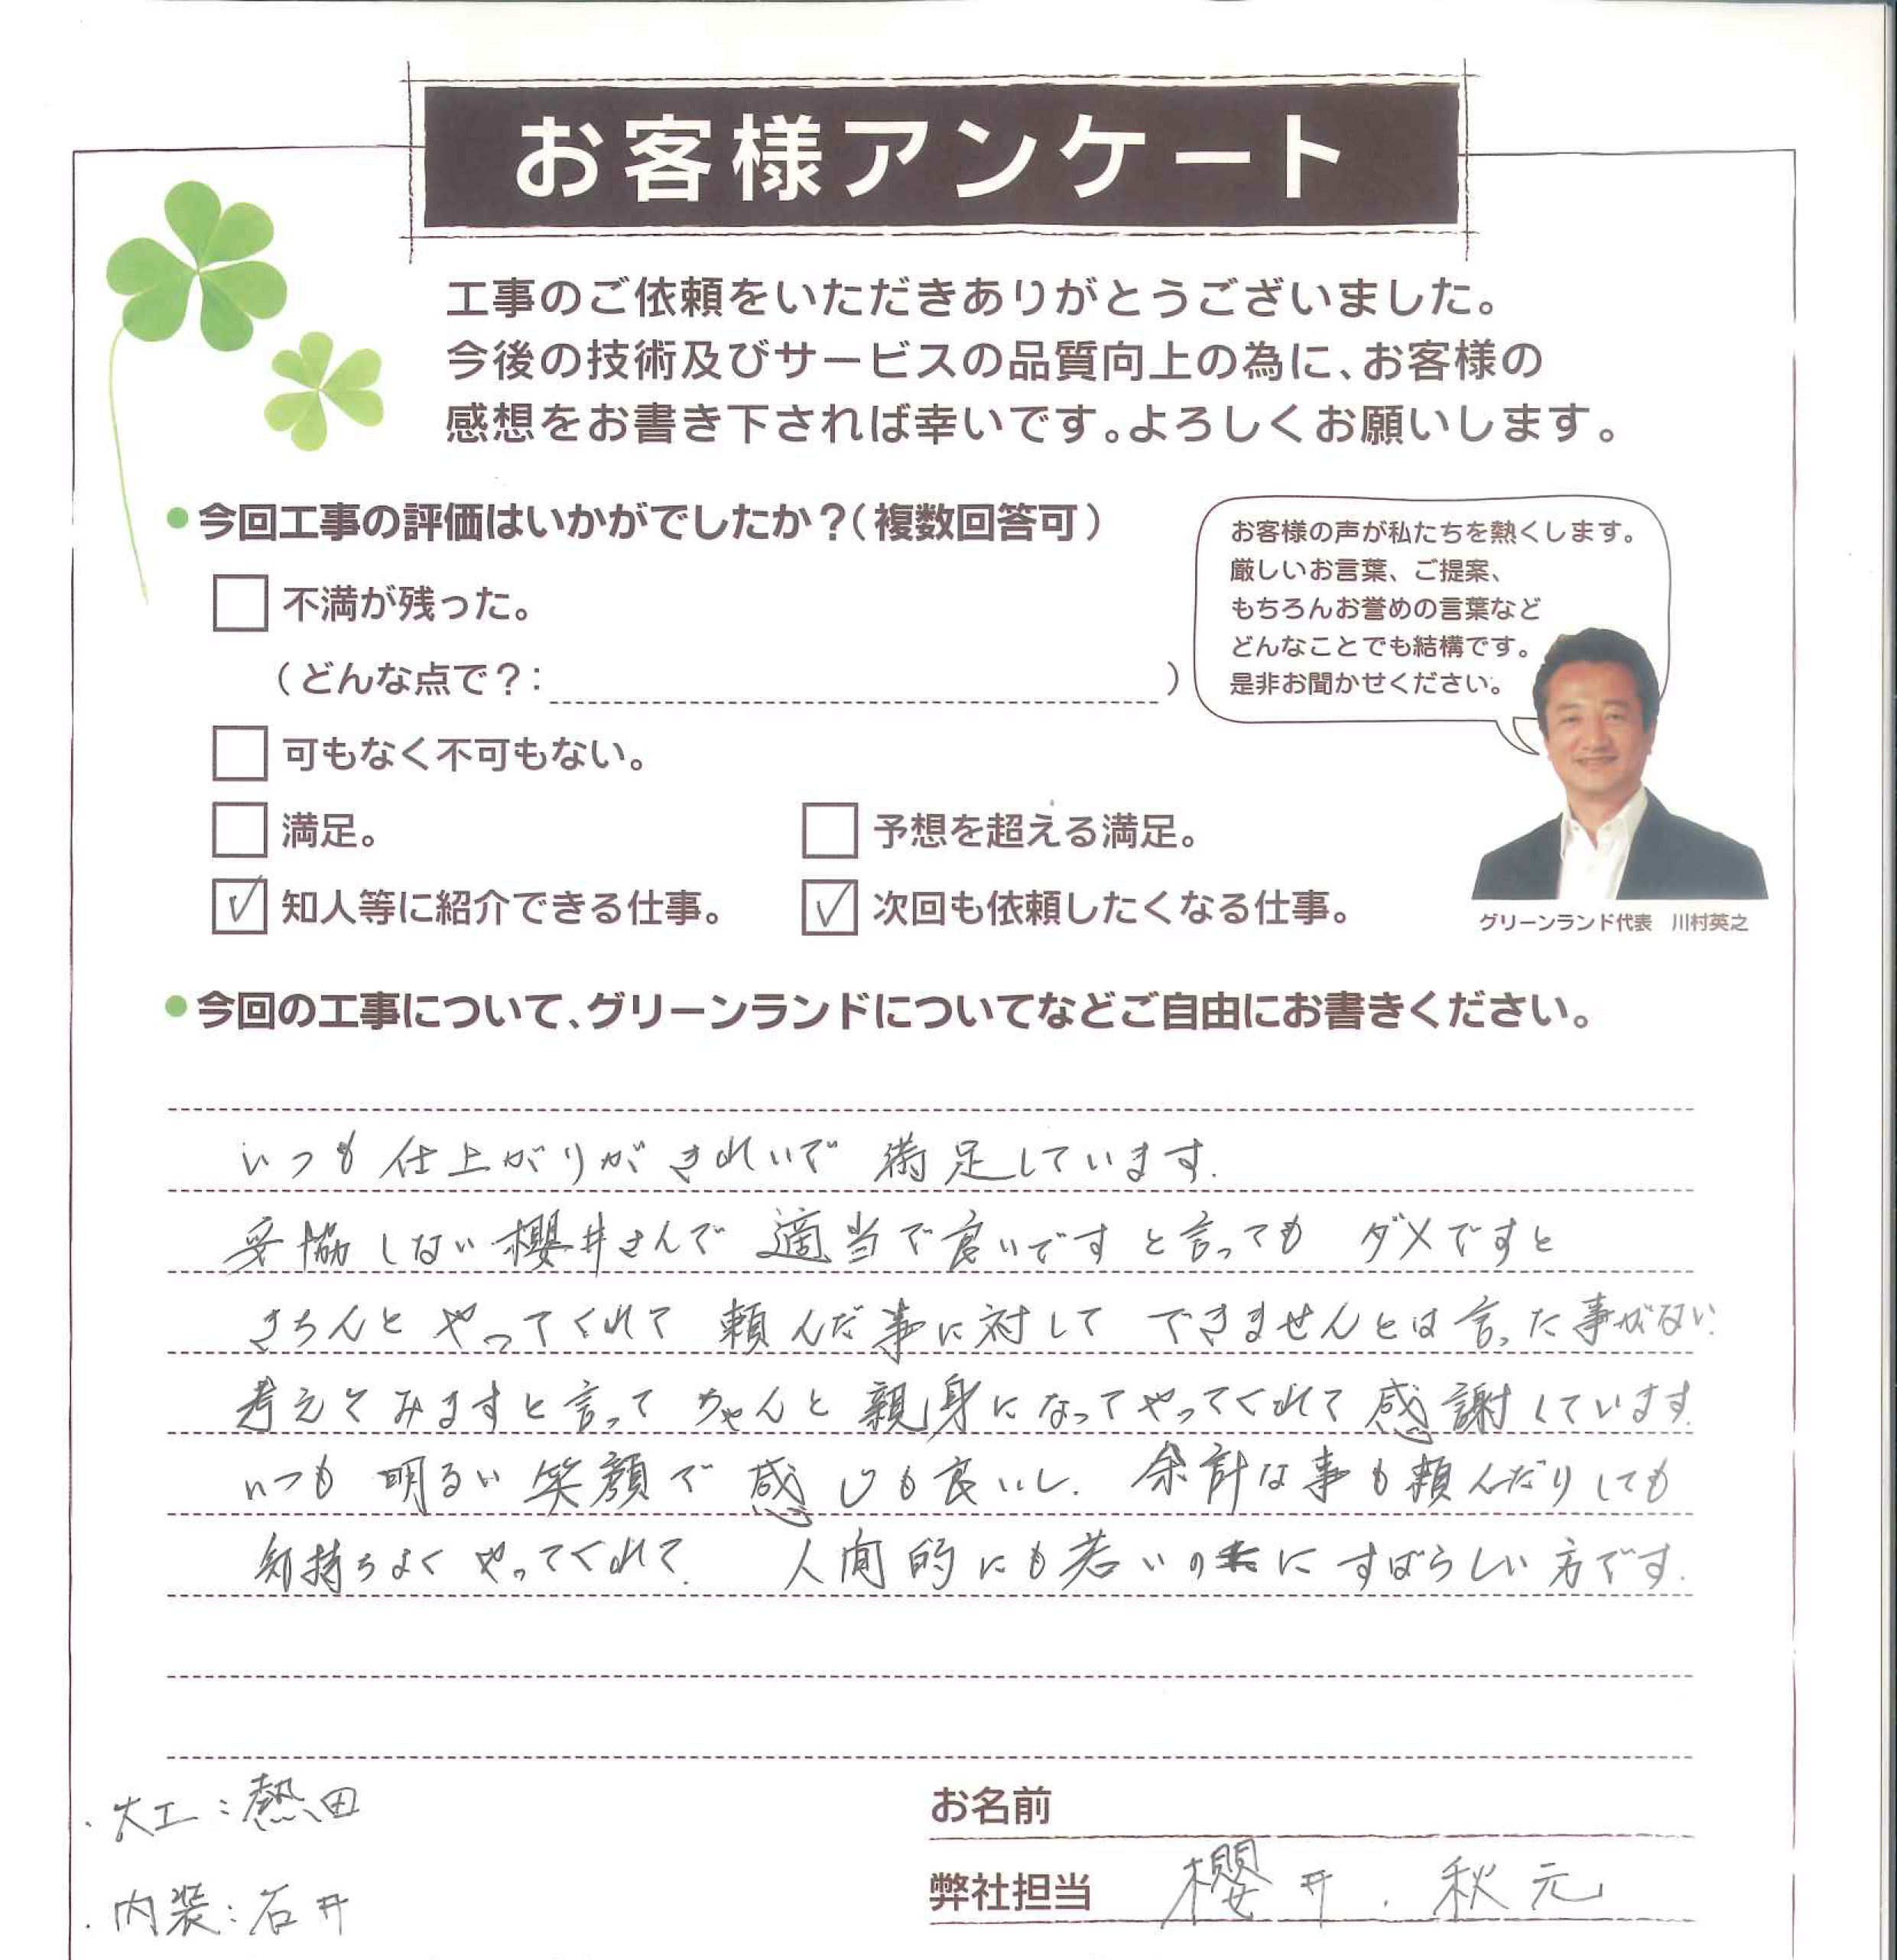 お客様アンケート
工事のご依頼をいただきありがとうございました。
今後の技術及びサービスの品質向上の為に、お客様の
感想をお書き下されば幸いです。よろしくお願いします。
●今回工事の評価はいかがでしたか？（複数回答可）
不満が残った。
（どんな点で？：　　　　）
可もなく不可もない。
満足。
予想を超える満足。
知人等に紹介できる仕事。
次回も依頼したくなる仕事。
お客様の声が私たちを熱くします。
厳しいお言葉、ご提案、
もちろんお誉めの言葉など
どんなことでも結構です。
是非お聞かせください。
グリーンランド代表　川村英之
●今回の工事について、グリーンランドについてなどご自由にお書きください。
いつも仕上がりがきれいで 満足しています.
妥協しない櫻井さんで 適当で良いですと言っても ダメですと
きちんと やってくれて 頼んだ事に対して できませんとは言った事がない.
考えてみますと言って ちゃんと親身になってやってくれて感謝しています.
いつも 明るい笑顔で 感じも良いし. 余計な事も頼んだりしても
気持ちよく やってくれて. 人間的にも若いのに すばらしい方です.
・大工：熱田
・内装：石井
お名前
弊社担当 櫻井．秋元